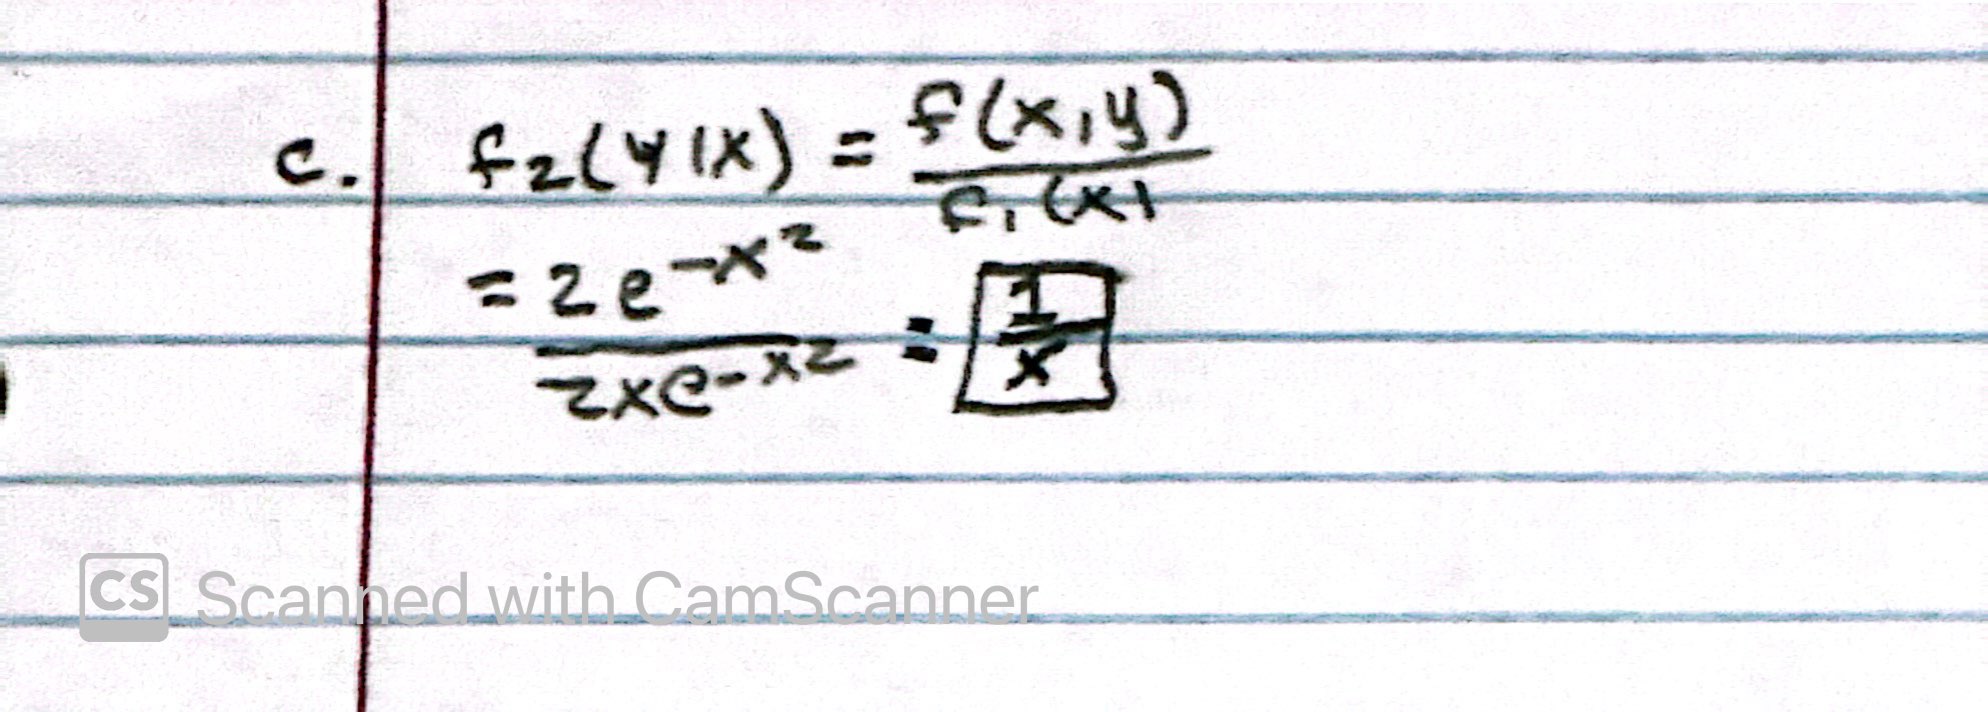 c. f₂(y|x) = f(x,y) / f₁(x)
= 2e^-x² / 2xe^-x² = 1/x
CS Scanned with CamScanner